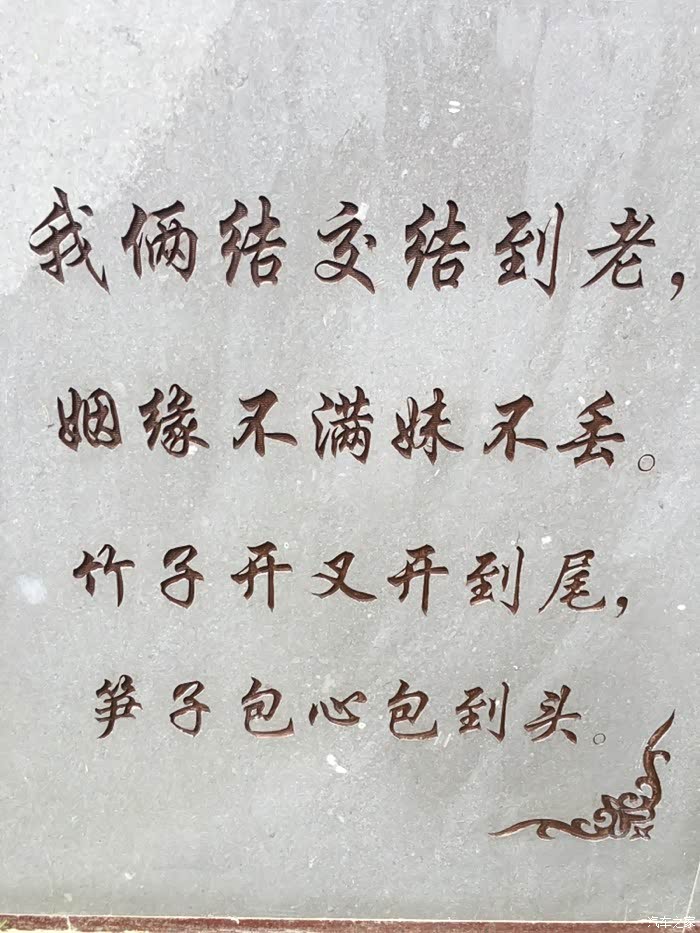 我俩结交结到老，
姻缘不满妹不丢。
竹子开叉开到尾，
笋子包心包到头。
汽车之家